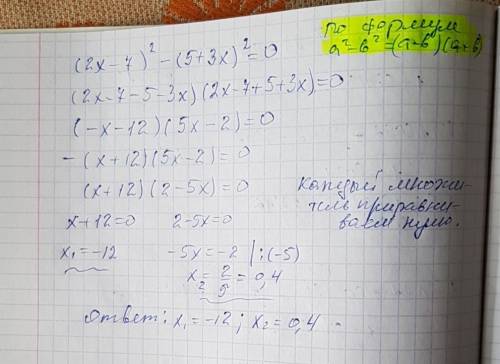 по формул
a²-b²=(a-b)(a+b)
(2x-7)²-(5+3x)²=0
(2x-7-5-3x)(2x-7+5+3x)=0
(-x-12)(5x-2)=0
-(x+12)(5x-2)=0
(x+12)(2-5x)=0
каждый множи-
тель приравни-
ваем нулю.
x+12=0 2-5x=0
x₁=-12 -5x=-2 |:(-5)
x₂=2/5=0,4
Ответ: x₁=-12; x₂=0,4